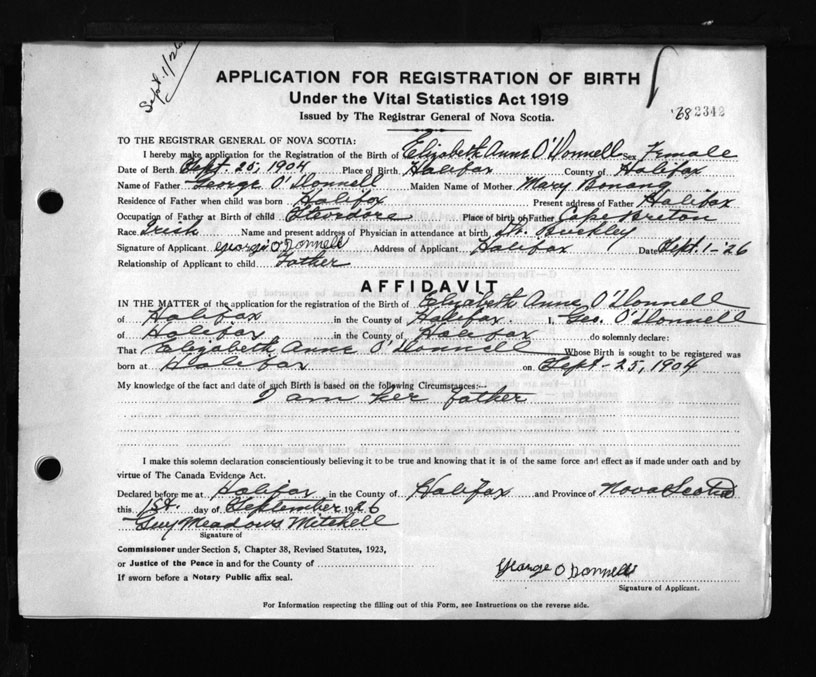 Sept. 1/26
APPLICATION FOR REGISTRATION OF BIRTH
Under the Vital Statistics Act 1919
Issued by The Registrar General of Nova Scotia.
'68 2342
TO THE REGISTRAR GENERAL OF NOVA SCOTIA:
I hereby make application for the Registration of the Birth of Elizabeth Anne O'Donnell Sex Female
Date of Birth Sept. 25, 1904 Place of Birth Halifax County of Halifax
Name of Father George O'Donnell Maiden Name of Mother Mary Bonang
Residence of Father when child was born Halifax Present address of Father Halifax
Occupation of Father at Birth of child Stevedore Place of birth of Father Cape Breton
Race Irish Name and present address of Physician in attendance at birth Dr. Buckley
Signature of Applicant George O'Donnell Address of Applicant Halifax Date Sept. 1-'26
Relationship of Applicant to child Father
AFFIDAVIT
IN THE MATTER of the application for the registration of the Birth of Elizabeth Anne O'Donnell
of Halifax in the County of Halifax. I, Geo. O'Donnell
of Halifax in the County of Halifax do solemnly declare:
That Elizabeth Anne O'Donnell Whose Birth is sought to be registered was
born at Halifax on Sept-25, 1904
My knowledge of the fact and date of such Birth is based on the following Circumstances:—
I am her Father
I make this solemn declaration conscientiously believing it to be true and knowing that it is of the same force and effect as if made under oath and by
virtue of The Canada Evidence Act.
Declared before me at Halifax in the County of Halifax and Province of Nova Scotia
this 1st. day of September 1926
Guy Meadows Mitchell
Signature of
Commissioner under Section 5, Chapter 38, Revised Statutes, 1923,
or Justice of the Peace in and for the County of
If sworn before a Notary Public affix seal.
George O Donnell
Signature of Applicant.
For Information respecting the filling out of this Form, see Instructions on the reverse side.